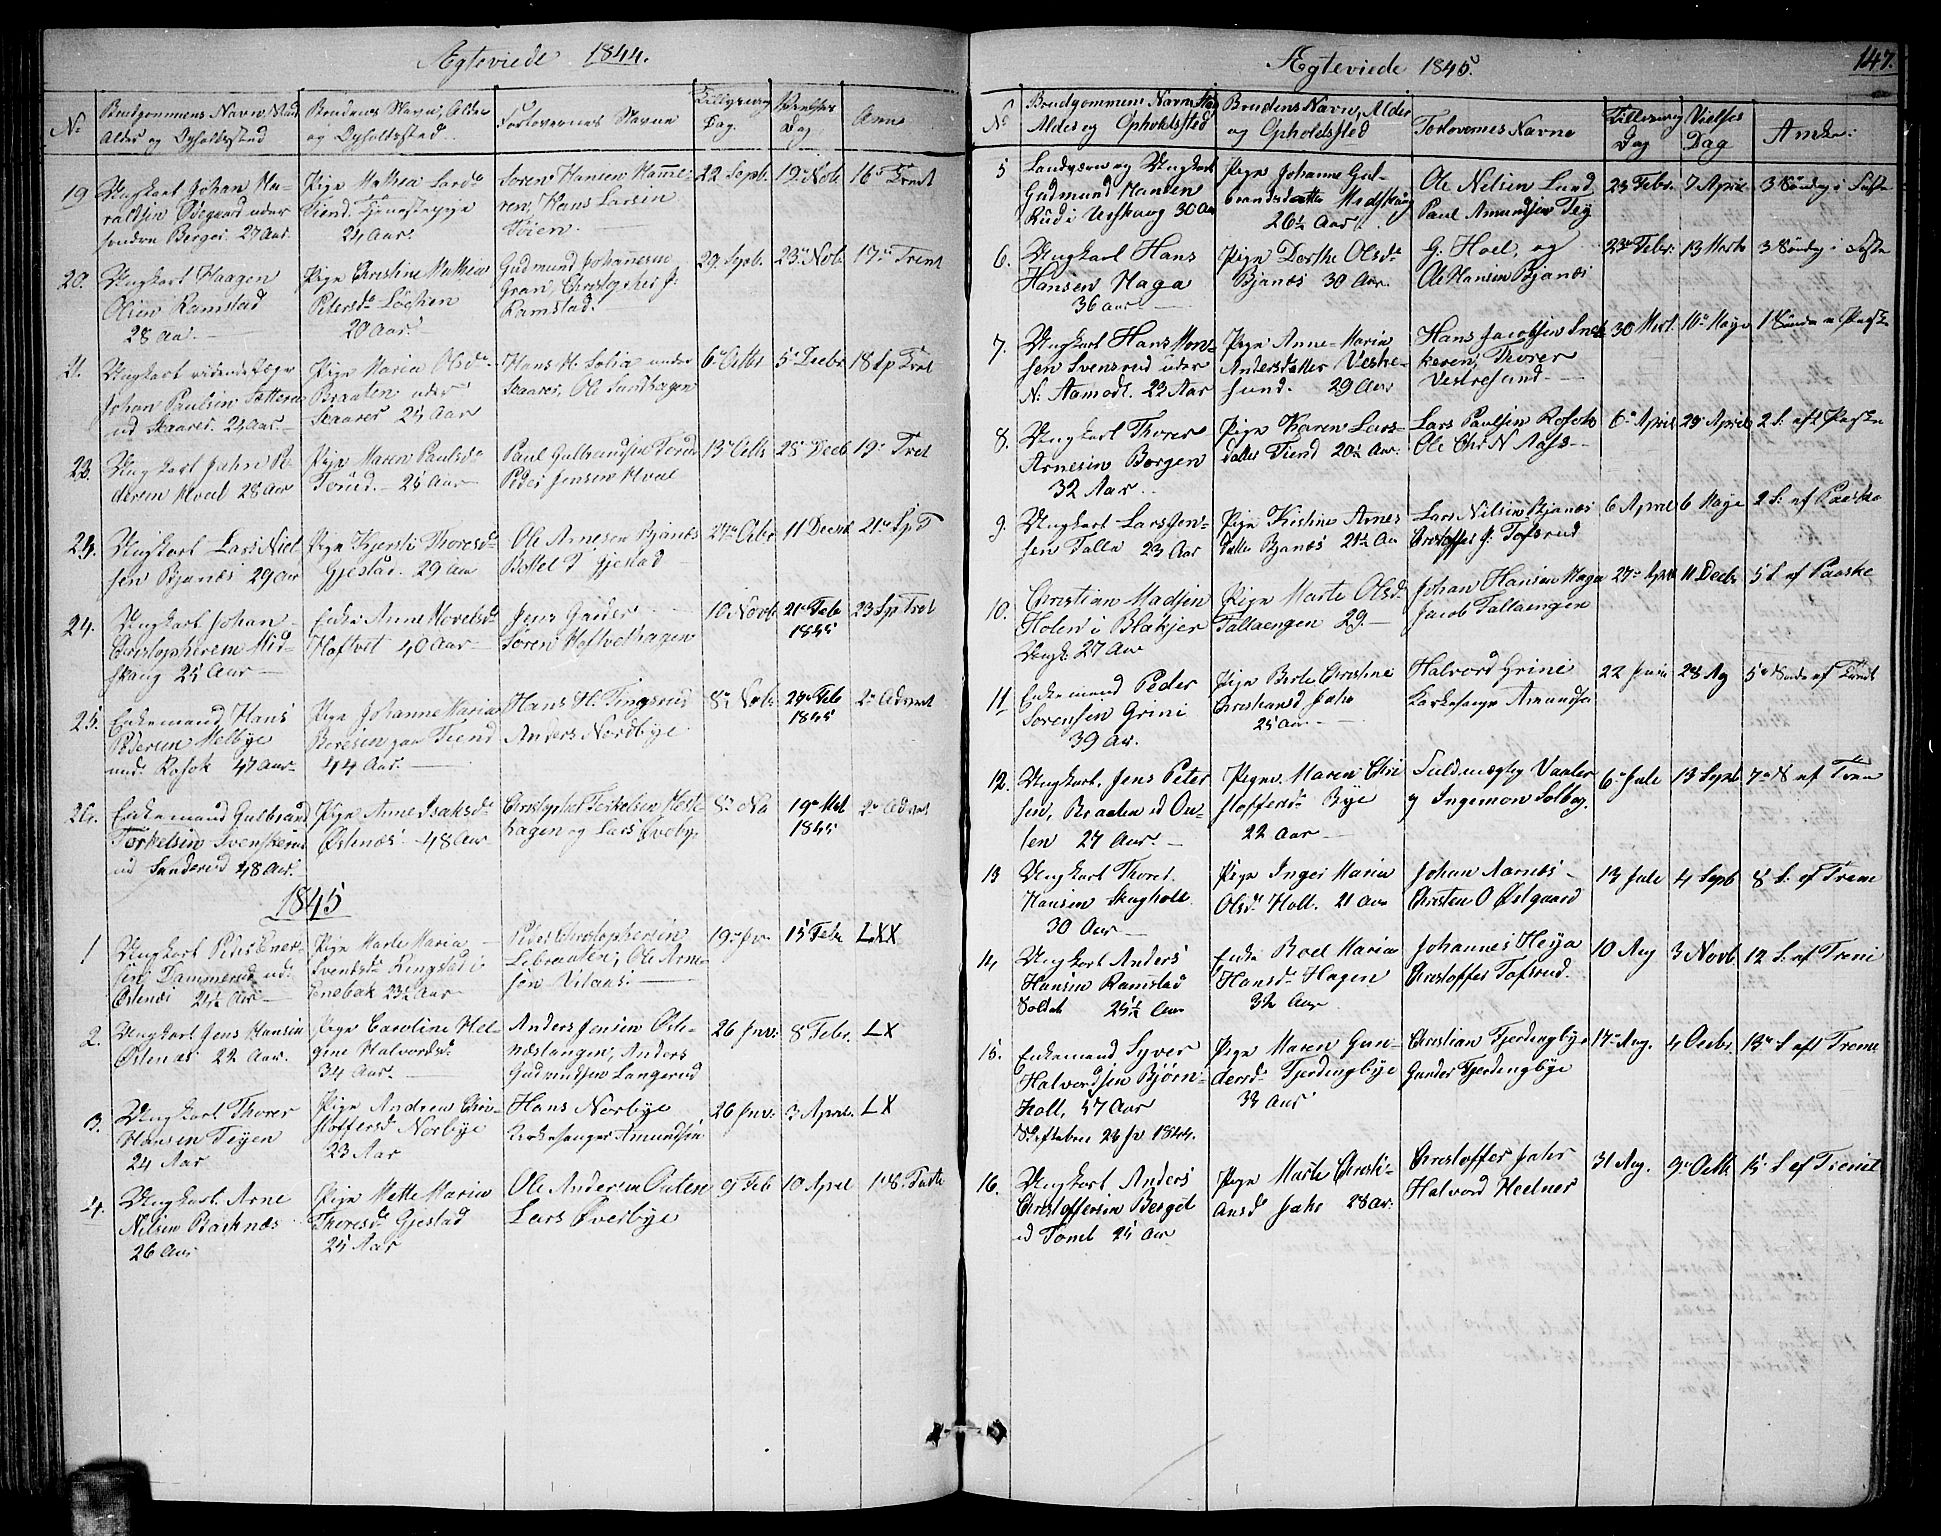 Ægteviede 1844.
No
Brudgommens Navn, Stand
Alder og Opholdssted
Brudens Navn, Alder
og Opholdssted
Forlovernes Navne
Tillysning
Dag.
Vielses
Dag
Anm
19
Ungkarl Johan Ha-
raldsen Ødegaard under
søndre Berger. 27 Aar.
Pige Mathea Larsd.
Tiend. Tjenestepige
24 Aar.
Søren Hansen Hamme-
ren, Hans Larsen
Töien
22 Septb.
19 Nob.
16 Trnt
20.
Ungkarl Haagen
Olsen Ramstad
28 Aa.
Pige Christine Mathea
Petersd. Løchen
20 Aar.
Gudmund Johannesen
Gran, Christopher J.
Ramstad.
29. Spb.
23 Nob.
17 Trent
21.
Ungkarl
Johan Paulsen
Skaarer. 24 Aar
Pige Maria Olsd.
Braaten under
Skaarer 25 Aar
Hans H. Lotia under
Skaarer, Ole Sandhagen
6 Octb
5 Decbr
18 Sp Tret
23.
Ungkarl
dersen Hval 28 Aar
Pige Maren Paulsd.
Torud. 25 Aar
Paul Gulbrandsen Torud
Peder Jensen Hval
13 Octb
28 Decb
19 Tret
24.
Ungkarl Lars Niel
sen Bjanæs 29 Aar
Pige Kjersti Thoresd.
Gjestad. 29 Aar
Ole Arnesen Bjanæs
Bottel T Gjestad
27 Octbr
11 Decbr
21 Sp T
24.
Ungkarl Johan
Christophersen Mid-
skaug 25 Aar
Enke Anne Hovelsd.
Hoftvet 40 Aar
Jens Gander
Søren Hoftvethagen
10 Novb
21 Feb
1845
23 Sp Tret
25.
Enkemand Hans
Pedersen Melbye
und. Rosok 47 Aar
Pige Johanne Maria
Boresen paa Tiend
44 Aar.
Hans H. Tingsrud
Anders Nordbye
8 Novb
28 Feb
1845
2 Advent
26.
Enkemand Gulbrand
Torkelsen Svenskerud
ud Sanderud 48 Aar.
Pige Anne Isaksd.
Østenæs. 48 Aar
Christopher Torkelsen Hest-
hagen og Lars Øveby
8 No
19 Mrt
1845
2 Advet
1845
1
Ungkarl Peder Ener-
sen Dammerud ud.
Østenæs 24½ Aar
Pige Marte Maria
Svendsd. Ringstad i
Enebak 23½ Aar
Peder Christophersen
Lebraaten, Ole Arne
sen Vilans
19 Jv.
15 Febr
LXX
2.
Ungkarl Jens Hansen
Østenæs 22 Aar.
Pige Caroline Hel-
gine Halvordsd.
34 Aar.
Anders Jensen Øste-
næstangen, Anders
Gudmndsen Langerud
26 Jnv.
8 Febr.
LX
3.
Ungkarl Thorer
Hansen Teyen
24 Aar
Pige Andrea Chri-
stoffersd. Norbye
23 Aar
Hans Norbye
Kirkesanger Amundsen
26 Jnv.
3 Aprl.
LX
4.
Ungkarl Arne
Nilsen Baknæs
26 Aar
Pige Mette Maria
Thoresd. Gjestad
25 Aar
Ole Andersen Østen
Lars Øverbye
9 Feb
10 Aprl
1 S. Faste
Ægteviede 1845.
147.
No
Brudgommens Navn, Stand
Alder og Opholdssted
Brudens Navn, Alder
og Opholdssted
Forlovernes Navne
Tillysning
Dag
Vielses
Dag
Anm:
5
Landværn og Ungkarl
Gudmund Hansen
Rud i Urskoug 30 Aar
Pige Johanne Gul-
brandsdatter Midskoug
26½ Aar.
Ole Nilsen Lund,
Paul Amundsen Tey
23 Febr.
7 April
3 Søndg i Faste
6.
Ungkarl Hans
Hansen Haga
36 aar
Pige Dorthe Olsd.
Bjanæs 30 Aar.
G. Hoel, og
Ole Hansen Bjanæs
23 Febr.
13 Marts
3 Søndg i Faste
7.
Ungkarl Hans Mon-
sen Svensrud under
N. Aamodt. 22 Aar
Pige Anne Maria
Andersdatter Vestre-
sund. 29 Aar
Hans Jacobsen Snek-
keren, Thorer
Vestresund
30 Mart.
10 Maye
1 Sønda e Paaske
8.
Ungkarl Thorer
Arnesen Borgen
32 Aar.
Pige Karen Lars-
datter Tiend 20½ Aar.
Lars Paulsen Rosok
Ole Chr. N Aas
6 April
29 April
2 S. eft Paaske
9.
Ungkarl Lars Jen-
sen Talla 23 Aar
Pige Kistine Arnes
datter Bjanæs 21½ Aar
Lars Nilsen Bjanæs
Christoffer J. Tofsrud
6 April
6 Maye
2 S. ef Paaske
10.
Christian Madsen
Holen i Blakjer
Ungk. 27 Aar
Pige Marte Olsd.
Tallaengen 29.
Johan Hansen Haga
Jacob Tallaengen
27 Aprl
11 Decbr
5 S. ef Paaske
11
Enkemand Peder
Sørensen Grini
39 Ar.
Pige Berte Christine
Christiansd Jahr
25 Aar
Halvord Grini
Kirkesanger Amundsen
22 Juni
28 Ag
5 Sønde ef Trent
12.
Ungkarl. Jens Peter
sen, Braaten ud Ou-
len 27 Aar.
Pige Maren Chri
stoffersd. Bye
22 Aar
Fuldmægtig Vanler
og Ingemon Solbg.
6 Jule
13 Sptb
7 S ef Tren
13
Ungkarl Thorer
Hansen Skugholt.
30 Aar
Pige Inger Maria
Olsd. Holl. 21 Aar
Johan Aarnæs
Christen O Østgaard
13 Jule
4 Sptb
8 S. ef Treni
14
Ungkarl Anders
Hansen Ramstad
Soldat 25½ Aar
Enke Boel Maria
Hansd. Hagen
32 Aar.
Johannes Heya
Christoffer Tofsrud.
10 Aug
3 Novb
12 S. ef Treni
15.
Enkemand Syver
Halvordsen Bjørn-
holt, 57 Aar
Skiftebev 26 Jv 1844.
Pige Maren Gun-
dersd. Fjerdingbye
33 Aar
Christian Fjerdingbye
Gunder Fjerdingbye
17 Aug.
4 Octbr
13 S. eft Treni
16.
Ungkarl Anders
Christoffersen Berget
ud Tomt 25 Aar
Pige Marte Christi-
ansd Jahr 28 Ar.
Christoffer Jahr
Halvord Hedner
31 Aug.
9 Octb
15 S. ef Trenit